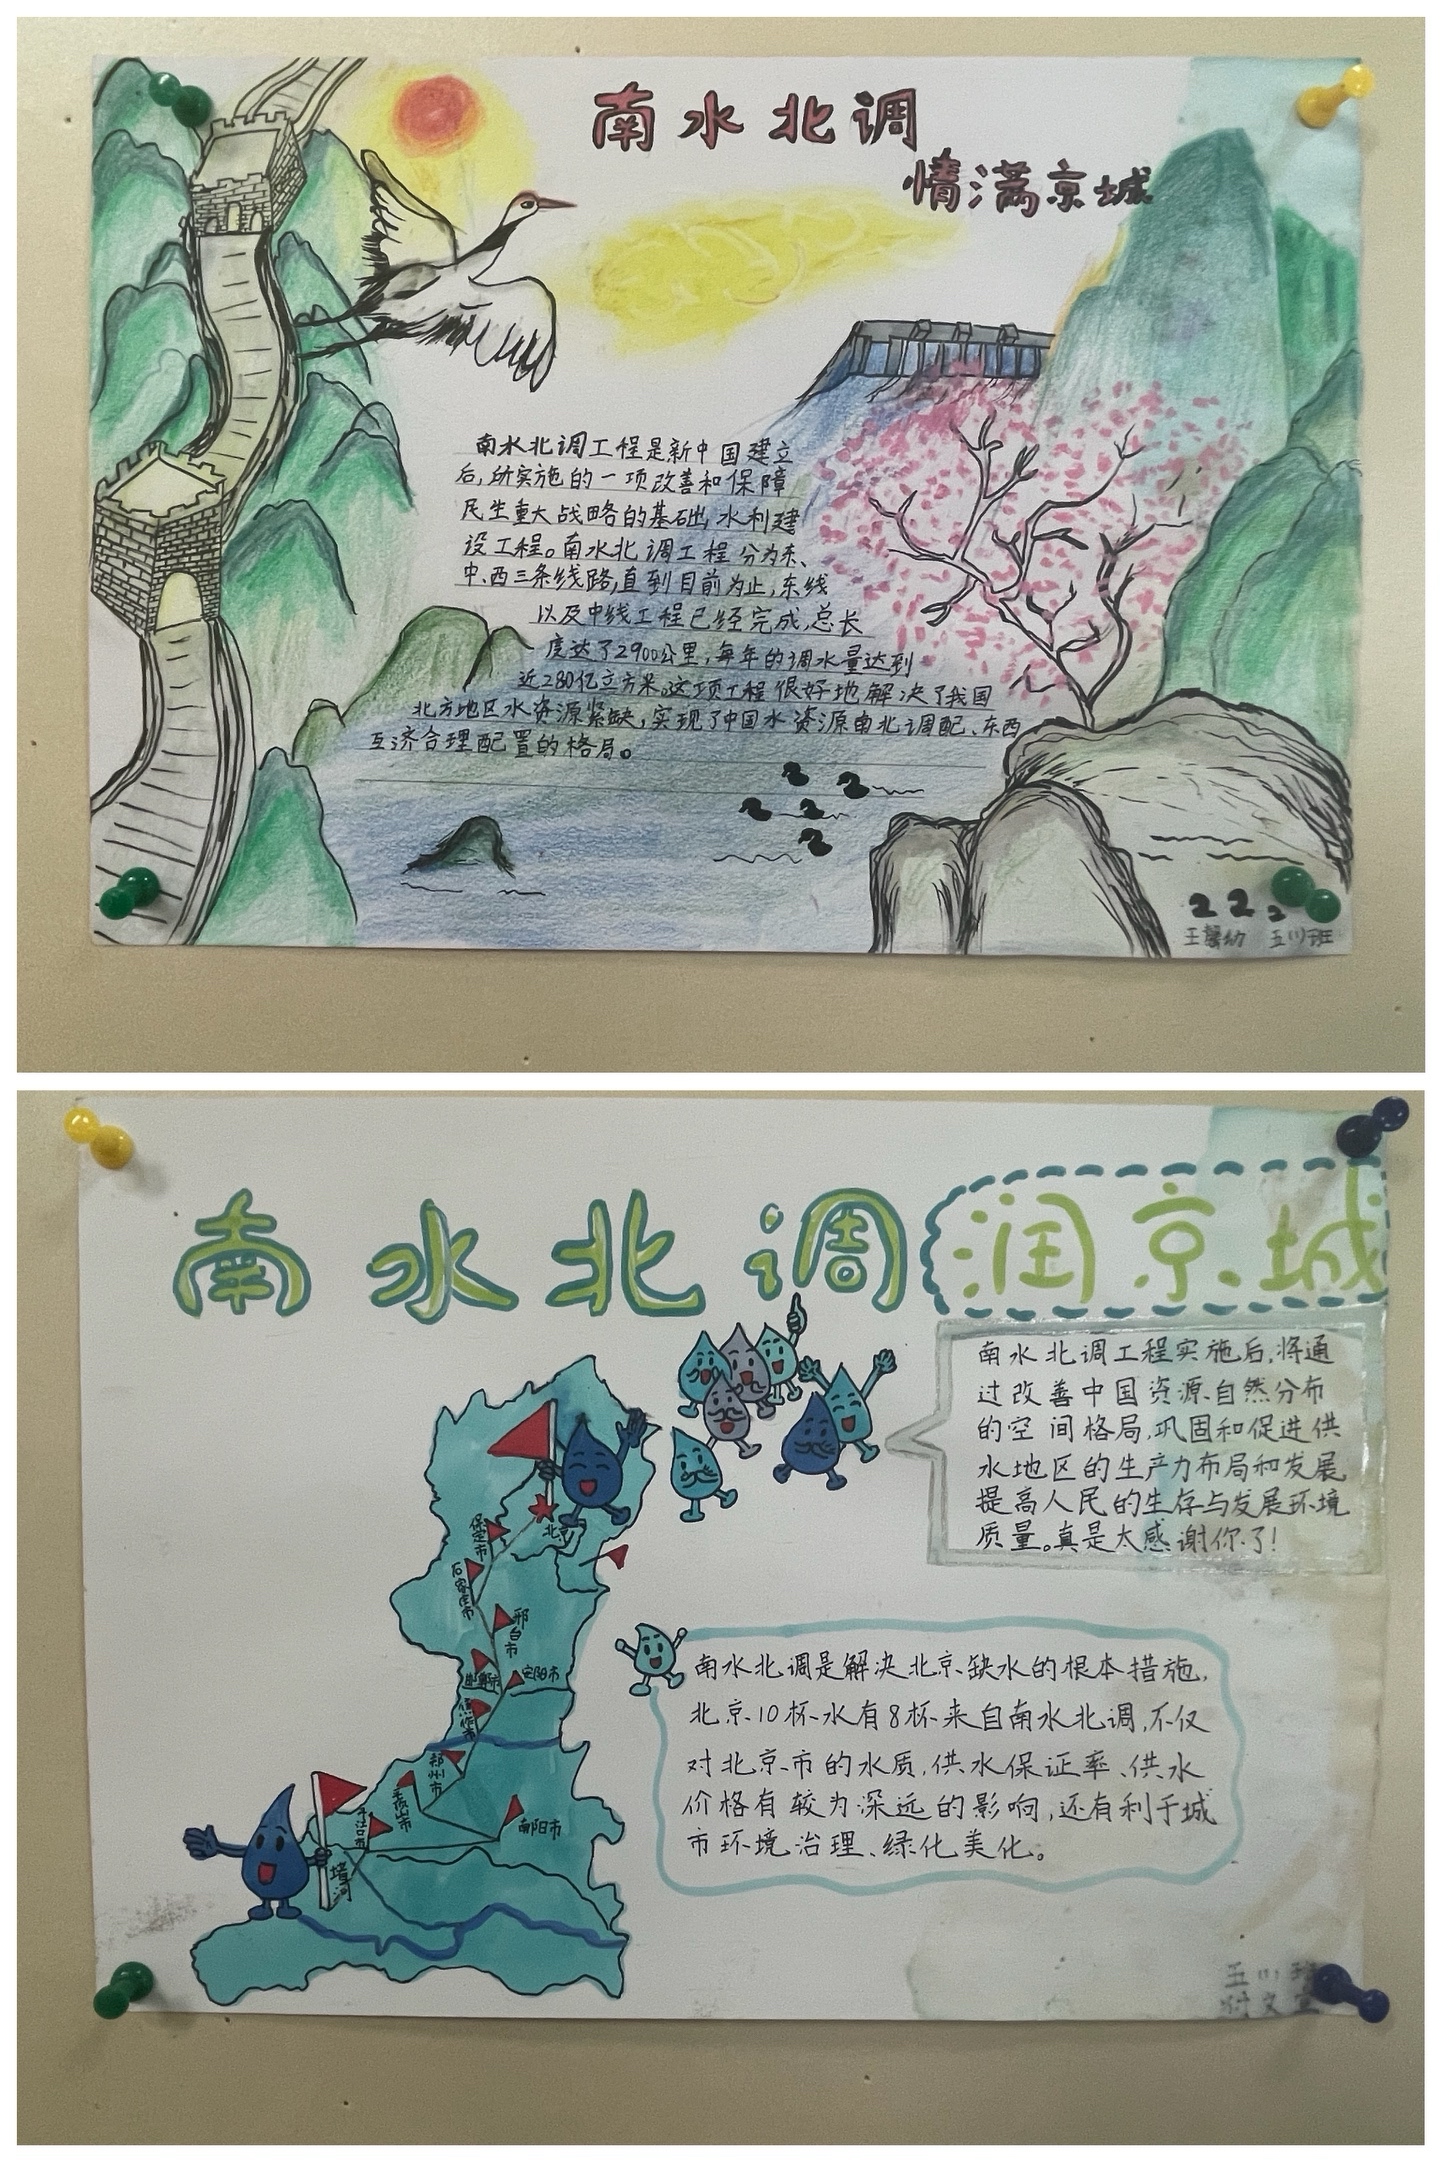 南水北调
情满京城
南水北调工程是新中国建立
后,所实施的一项改善和保障
民生重大战略的基础水利建
设工程。南水北调工程分为东、
中、西三条线路,直到目前为止,东线
以及中线工程已经完成,总长
度达了2900公里,每年的调水量达到
近280亿立方米。这项工程很好地解决了我国
北方地区水资源紧缺,实现了中国水资源南北调配、东西
互济合理配置的格局。
五(1)班
南水北调
润京城
南水北调工程实施后,将通
过改善中国资源、自然分布
的空间格局,巩固和促进供
水地区的生产力布局和发展
提高人民的生存与发展环境
质量。真是太感谢你了!
北京
保定市
石家庄市
邢台市
邯郸市
安阳市
焦作市
郑州市
平顶山市
南阳市
南水北调是解决北京缺水的根本措施,
北京10杯水有8杯来自南水北调,不仅
对北京市的水质,供水保证率、供水
价格有较为深远的影响,还有利于城
市环境治理、绿化美化。
五(1)班